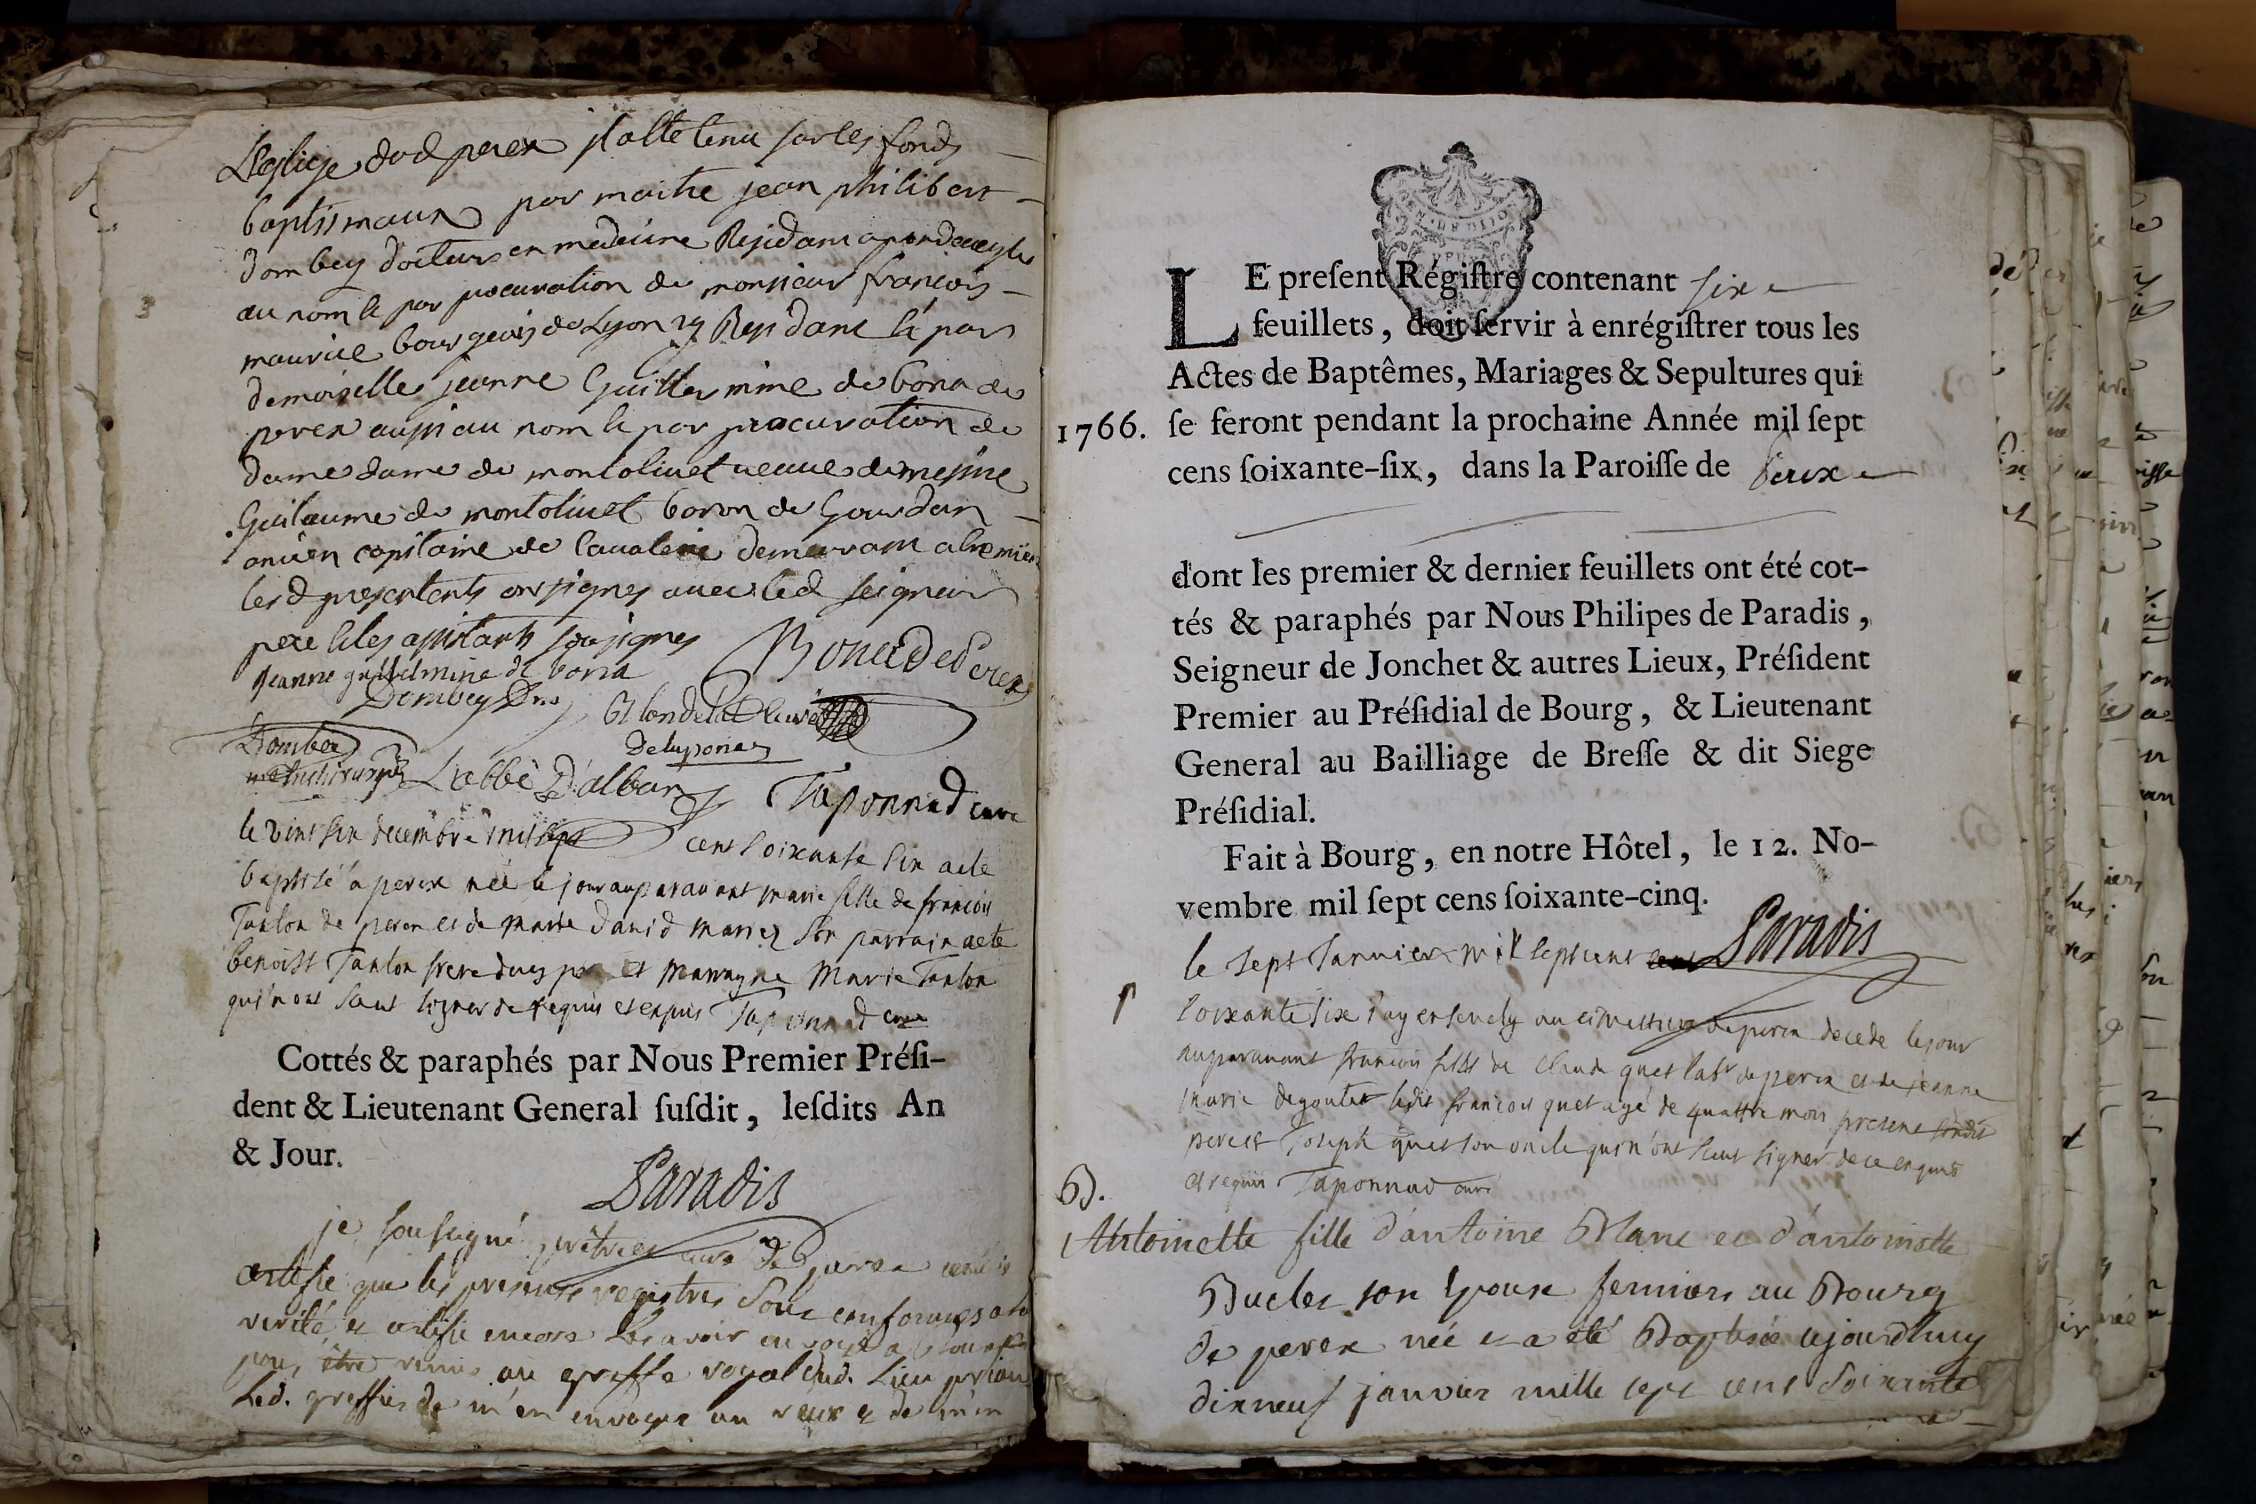 L'eglise dud perex il a esté tenu sur les fonds
baptismaux par maitre jean philibert
Dombey docteur en medecine Residant a pondeveyle
au nom & par procuration de monsieur françois
maurice bourgeois de Lyon y Residant & par
demoiselle jeanne Guillermine de bona de
perex aussi au nom & par procuration de
dame dame de montolivet veuve de messire
Guilaume de montolivet baron de Gourdan
ancien capitaine de Cavalerie demeurant a
lesd presentents ont signes avec led seigneur
pere & les assistants soussignes
jeanne guillelmine de bona Bona de Perex
Dombey Dm
Delaporia
Dombey
L'abbé D'alban Taponnad curé
le vint six decembre mil sept cent soixante six a ete
baptisé a perex née le jour auparavant marie fille de françois
Tanton de perex et de marie David mariez son parrain a ete
benoist Tanton frere du et marrayne Marie Tanton
qui n'ont sceus signer de requis et enquis Taponnad curé
Cottés & paraphés par Nous Premier Préſi-
dent & Lieutenant General ſuſdit, leſdits An
& Jour.
Paradis
je soussigné prêtre et curé de perex
certifie que les presents registres sont conformes a la
verité, et certifie encore les avoir envoyé a
pour être remis au greffe royal dud. Lieu priant
Led. greffier de m'en envoyer un reçu & de m'en
LE preſent Régiſtre contenant six
feuillets, doit ſervir à enrégiſtrer tous les
Actes de Baptêmes, Mariages & Sepultures qui
1766. ſe feront pendant la prochaine Année mil ſept
cens ſoixante-ſix, dans la Paroiſſe de Perex
dont les premier & dernier feuillets ont été cot-
tés & paraphés par Nous Philipes de Paradis,
Seigneur de Jonchet & autres Lieux, Préſident
Premier au Préſidial de Bourg, & Lieutenant
General au Bailliage de Breſſe & dit Siege
Préſidial.
Fait à Bourg, en notre Hôtel, le 12. No-
vembre mil ſept cens ſoixante-cinq.
Paradis
le sept Janvier mil sept cent
soixante six j'ay ensevely au cimettiere de perex decede le jour
auparavant françois fils de Claude quet labr de perex et de jeanne
marie degoutet ledit françois quet agé de quattre mois present
pere et Joseph quet son oncle qui n'ont sceus signer de ce enquis
et requis Taponnad curé
B.
Antoinette fille d'antoine Blanc et d'antoinette
Buclet son Epouse fermiers au Bourg
de perex née et a été Baptisée aujourdhuy
dixneuf janvier mille sept cent soixante